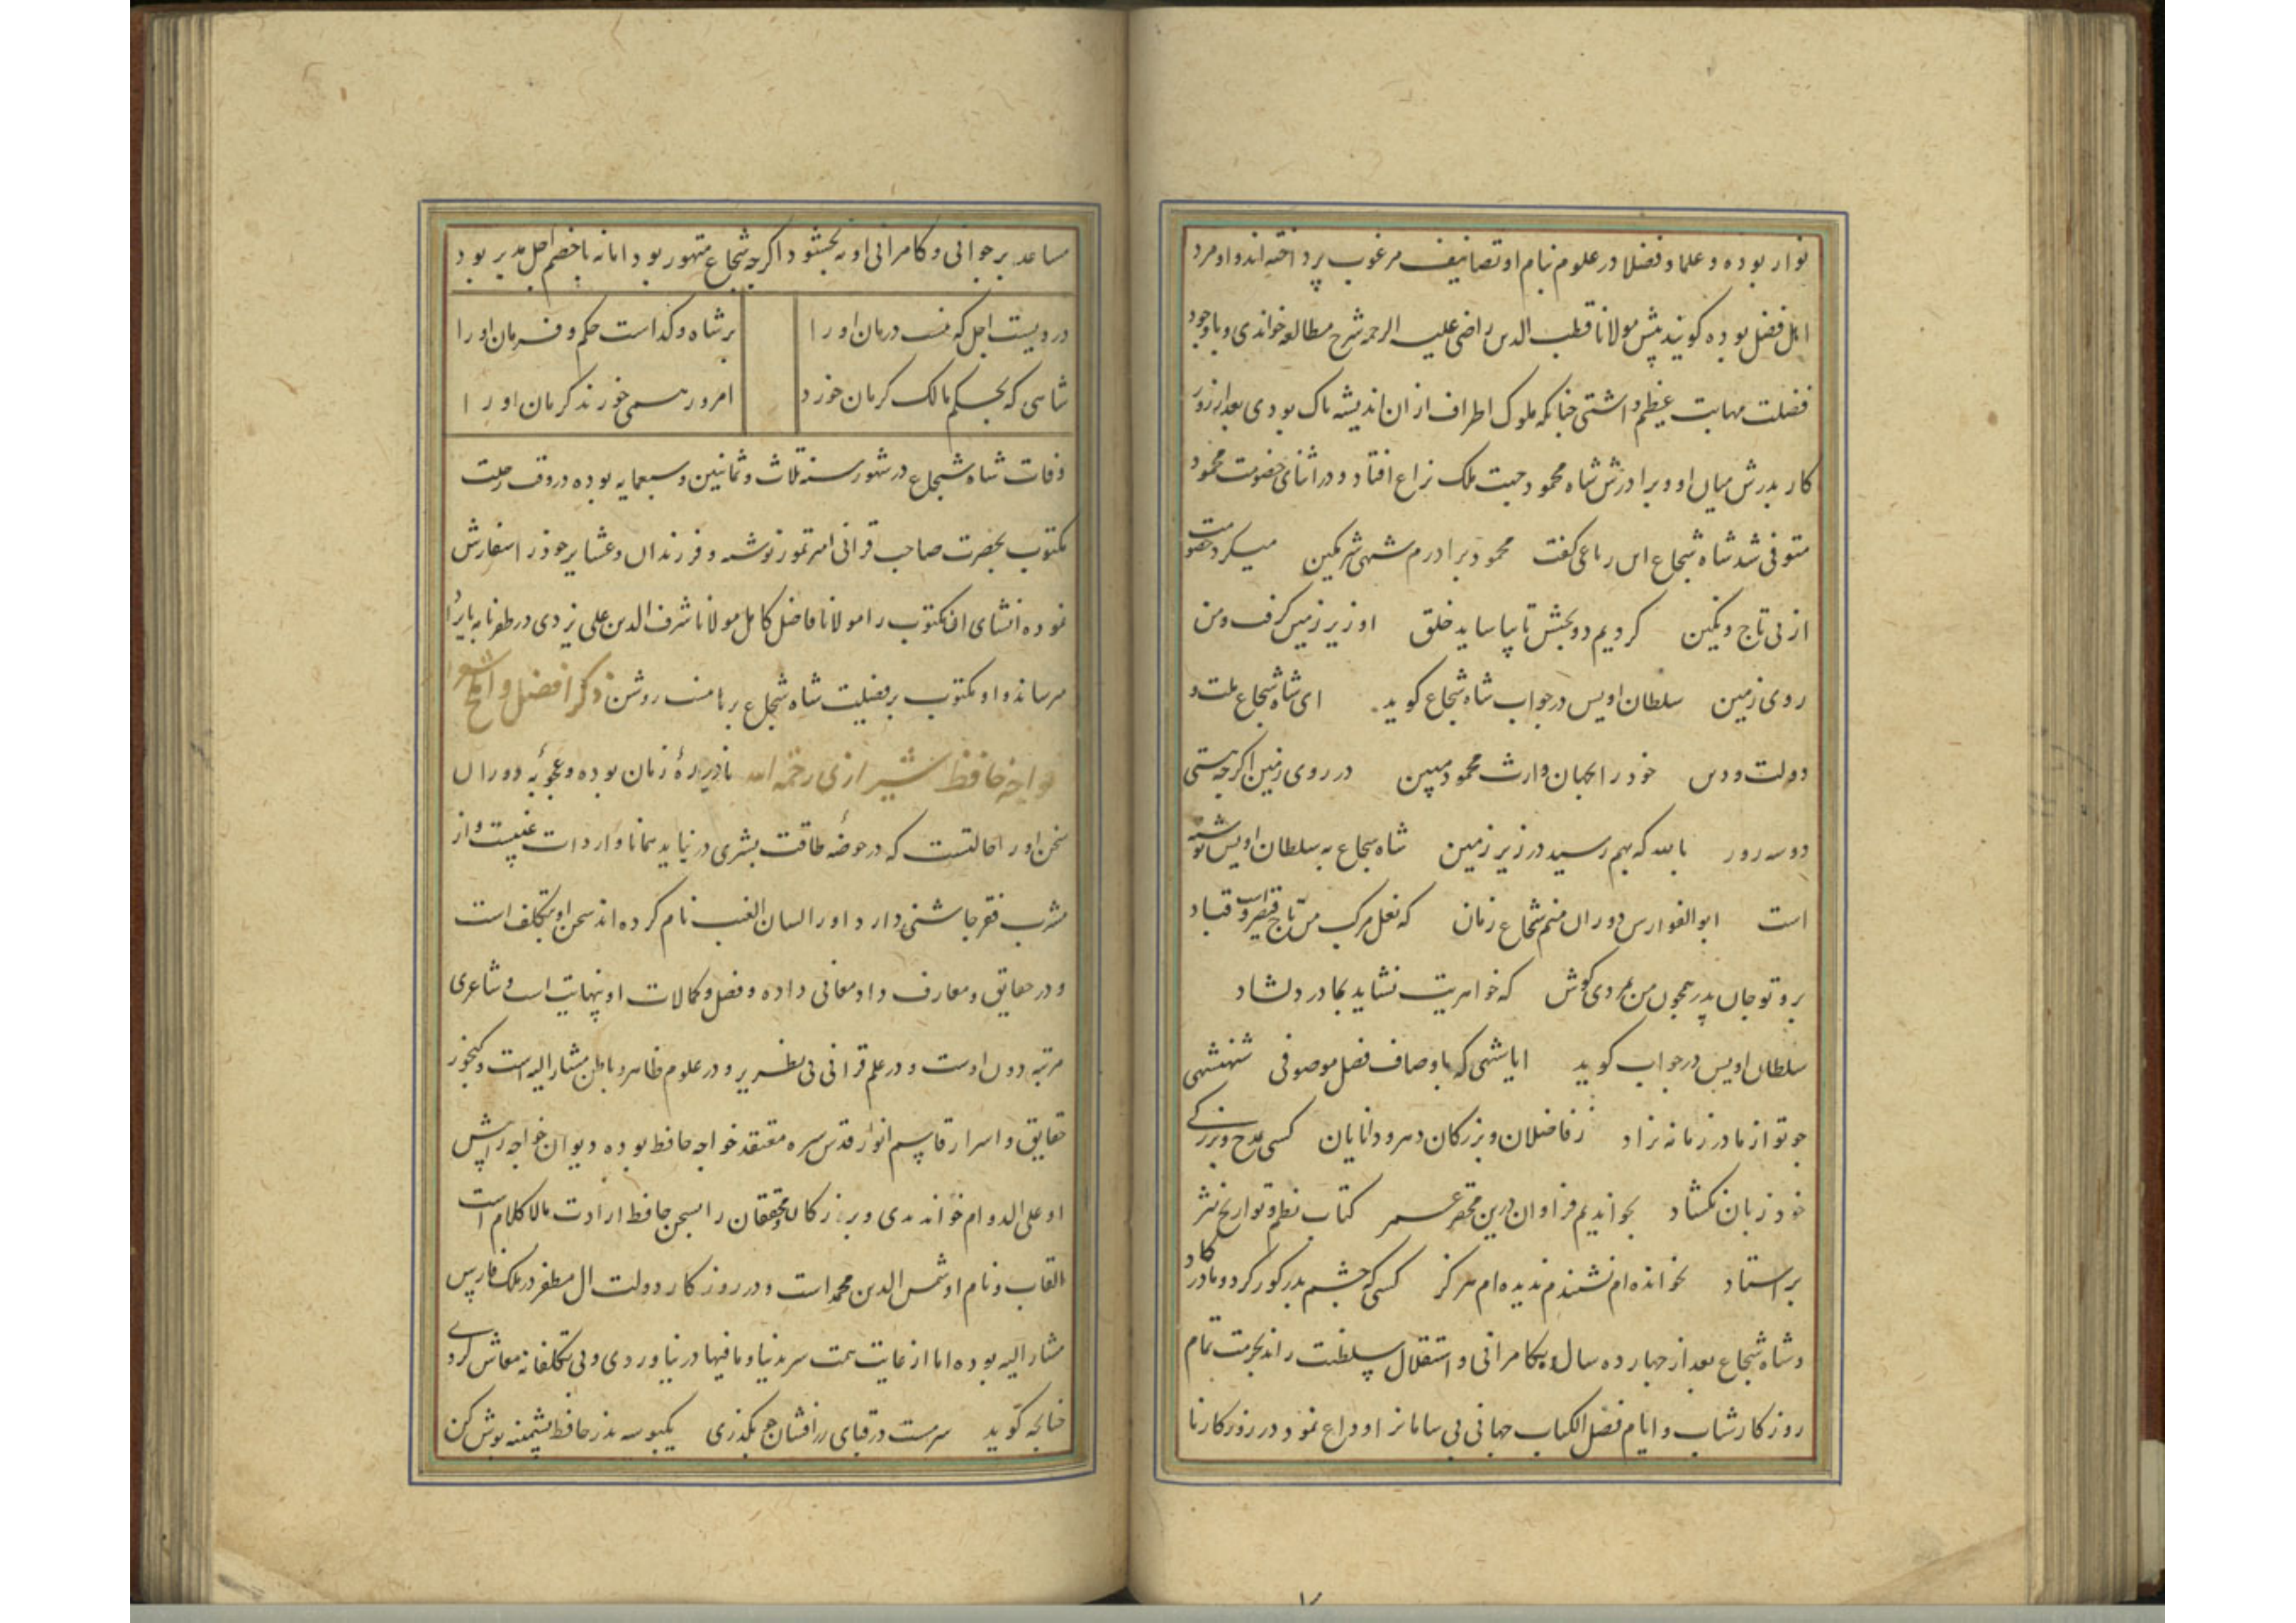 نواز بوده و علما و فضلا در علوم بنام او تصانیف مرغوب پرداخته‌اند و او مرد
اهل فضل بوده گویند پیش مولانا قطب الدین راضی علیه الرحمه شرح مطالعه خواندی و باوجود
فضلت مهابت عظیم داشتی چنانکه ملوک اطراف ازان اندیشه ناک بودی بعد از روز
کار پدرش میان او و برادرش شاه محمود جهت ملک نزاع افتاد و در اثنای خصومت محمود
متوفی شد شاه شجاع این رباعی گفت محمود برادرم شهی شیر کمین میکرد خصومت
از پی تاج و نگین کردیم دو بخش تا بیاساید خلق او زیر زمین گرفت و من
روی زمین سلطان اویس در جواب شاه شجاع گوید ای شاه شجاع ملت و
دولت و دین خود را بجهان وارث محمود مبین در روی زمین اگرچه هستی
دو سه روز بالله که بهم رسید در زیر زمین شاه شجاع به سلطان اویس نوشته
است ابوالفوارس دوران منم شجاع زمان که نعل مرکب من تاج قیصرست و قباد
برو تو جان پدر همچون من بمردی کوش که خواهریت نشاید بمادر دلشاد
سلطان اویس در جواب گوید ایا شهی که باوصاف فضل موصوفی شهنشهی
چو تو از مادر زمانه نزاد ز فاضلان و بزرگان دهر و دانایان کسی بمدح و بزرگی
خود زبان نکشاد بخواندیم فراوان درین مختصر عمر کتاب نظم و تواریخ نثر
بر استاد نخوانده‌ام نشنیدم ندیده‌ام هرگز کسی که چشم پدر کور کرد و مادر کاد
و شاه شجاع بعد از چهارده سال بکامرانی و استقلال سلطنت راند بحرمت تمام
روزگار شباب و ایام فضل الکتاب جهانی بی سامانرا وداع نمود و در روزگار نا
مساعد بر جوانی و کامرانی او نه بخشود اگرچه شجاع متهور بود اما نه با خصم اجل مدبر بود
دردیست اجل که نیست درمان او را بر شاه و گداست حکم و فرمان او را
شاهی که بحکم مالک کرمان خورد امروز همی خورند کرمان او را
وفات شاه شجاع در شهور سنه ثلاث و ثمانین و سبعمایه بوده در وقت رحلت
مکتوب بحضرت صاحب قرانی امیر تمور نوشته و فرزندان و عشایر خود را سفارش
نموده انشای ان مکتوب را مولانا فاضل کامل مولانا شرف الدین علی یزدی در ظفرنامه
میرساند و او مکتوب بر فضیلت شاه شجاع برهانیست روشن ذکر افضل و افصح
خواجه حافظ شیرازی رحمه الله نادره زمان بوده و عجوبه دوران
سخن او را حالتست که در حوضه طاقت بشری درنیاید همانا واردات غیبیست و از
مشرب فقر چاشنی دارد و او را لسان الغیب نام کرده‌اند سخن او بی تکلف است
و در حقایق و معارف داد معانی داده و فضل و کمالات او بی نهایت است و شاعری
مرتبه دون اوست و در علم قرانی بی نظیر بود و در علوم ظاهر و باطن مشارالیه است و گنجور
حقایق و اسرار قاسم انوار قدس سره معتقد خواجه حافظ بوده دیوان خواجه را پیش
او علی الدوام خواندندی و بزرگان و محققان را بسخن حافظ ارادت مالا کلام است
القاب و نام او شمس الدین محمد است و در روزگار دولت ال مظفر در ملک فارس
مشارالیه بوده اما از غایت همت سر بدنیا و مافیها درنیاوردی و بی تکلفانه معاش کردی
چنانچه گوید سرمست در قبای زرافشان چو بگذری یکبوسه نذر حافظ پشمینه پوش کن